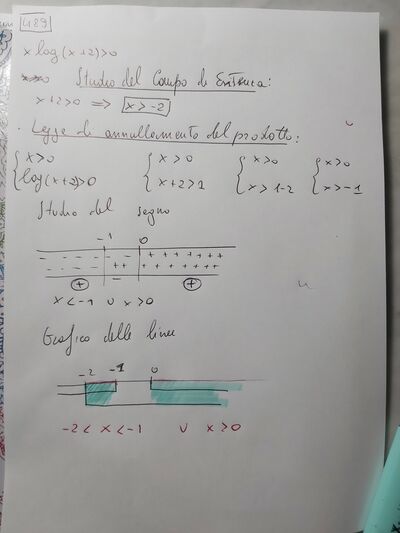 489
x log(x+2)>0
Studio del Campo di Esistenza:
x+2>0 => x>-2
· Legge di annullamento del prodotto:
{ x>0 { x>0 { x>0 { x>0
log(x+2)>0 x+2>1 x>1-2 x>-1
Studio del segno
-1 0
- - - - - - + + + + + + +
- - - - + + + + + + + + +
+ - +
x<-1 ∪ x>0
Grafico delle linee
-2 -1 0
-2<x<-1 ∪ x>0